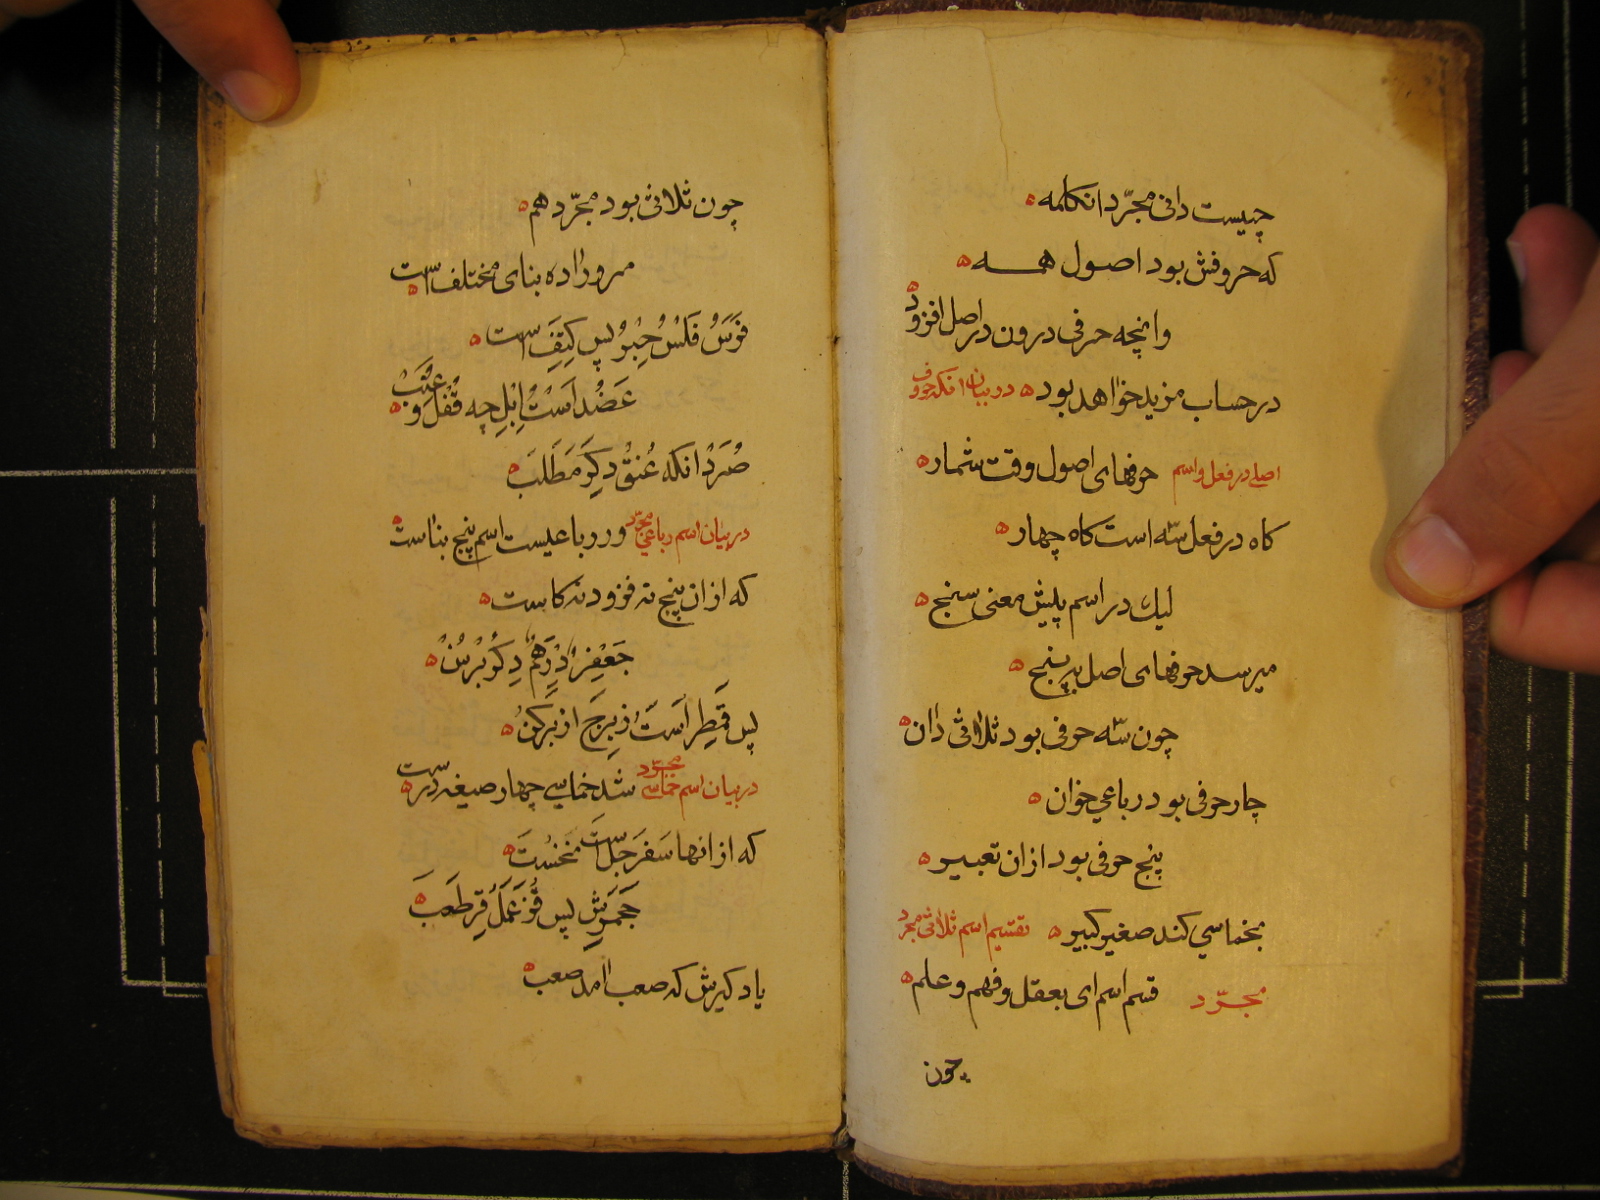 چیست دانی مجرّد انکلمه
که حروفش بود اصول همه
وانچه حرفی درون در اصل افزود
در حساب مزید خواهد بود در بیان انکه حروف
اصلی در فعل و اسم حرفهای اصول وقت شمار
کاه در فعل سّه است کاه چهار
لیک در اسم پلیش معنی سنج
میرسد حرفهای اصل به پنج
چون سّه حرفی بود ثلاثی دان
چار حرفی بود رباعی خوان
پنج حرفی بود ازان تعبیر
بخماسی کند صغیر کبیر تقسیم اسم ثلاثی مجرد
مجرّد قسم اسم ای بعقل و فهم و علم
چون
چون ثلاثی بود مجرّد هم
مرورا ده بنای مختلف است
فَرَسُ فَلْسُ حِبْرُ پس کَتِفَ است
عَضُد است اِبْلِ چه قُفْل و عِنَب
صُرَدْ دانکه عُنقْ دکر مَطْلَب
در بیان اسم رباعی مجرّد ور رباعیست اسم پنج بناست
که ازان پنج نه فزود نه کاست
جَعْفِر دِرْهَمُ دِکر بُرْثُنْ
پس قِمَطِر است زِبْرِج از برکن
در بیان اسم خماسی مجرّد شد خماسی چهار صیغه درست
که از انها سَفَرجَل است نخست
جَحْمَرِش پس قُزَعْمَل قِرطَعب
یاد کیرش که صعب امد صعب